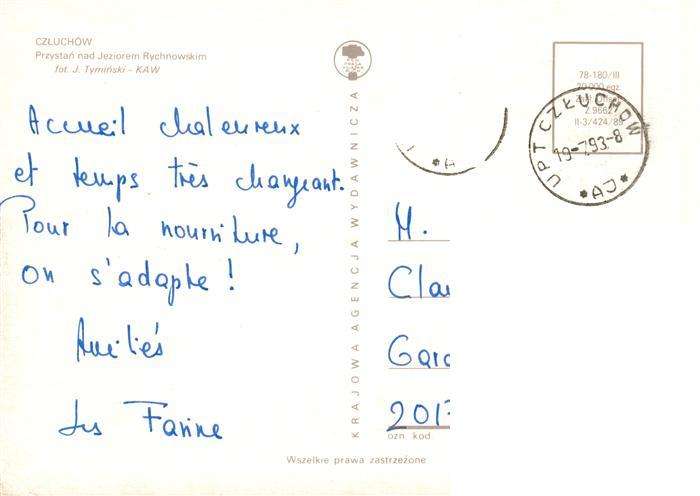 CZŁUCHÓW
Przystań nad Jeziorem Rychnowskim
fot. J. Tymiński - KAW
Accueil chaleureux
et temps très changeant.
Pour la nourriture,
on s'adapte !
Amitiés
Les Farine
KRAJOWA AGENCJA WYDAWNICZA
78-180/III
20 000 egz.
Z 9662
II-3/424/89
UPT CZŁUCHÓW
19-7.93-8
* AJ *
* A
M.
Cla
Gar
201
ozn. kod
Wszelkie prawa zastrzeżone